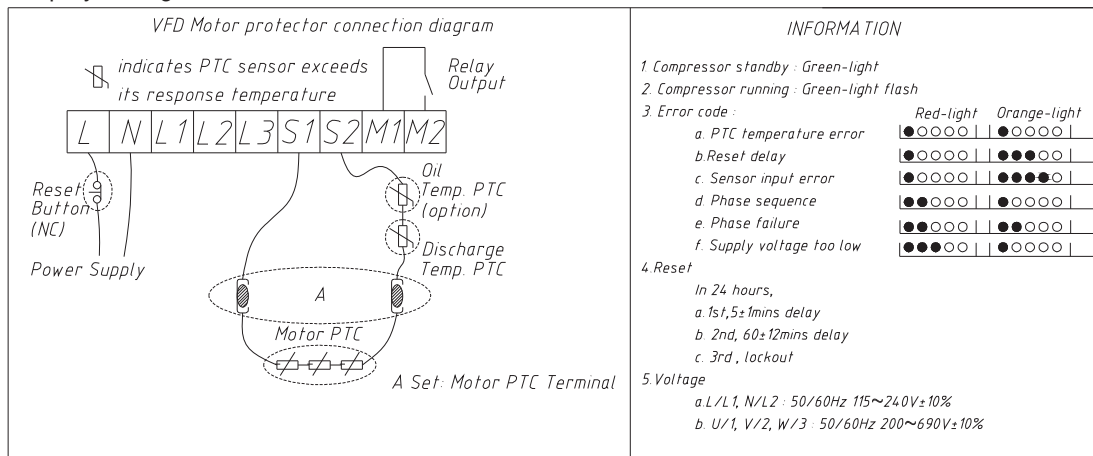 VFD Motor protector connection diagram
indicates PTC sensor exceeds
its response temperature
Relay
Output
L N L1 L2 L3 S1 S2 M1 M2
Reset
Button
(NC)
Power Supply
Oil
Temp. PTC
(option)
Discharge
Temp. PTC
A
Motor PTC
A Set: Motor PTC Terminal
INFORMATION
1. Compressor standby : Green-light
2. Compressor running : Green-light flash
3. Error code :
Red-light Orange-light
a. PTC temperature error
b.Reset delay
c. Sensor input error
d. Phase sequence
e. Phase failure
f. Supply voltage too low
4.Reset
In 24 hours,
a.1st,5±1mins delay
b. 2nd, 60±12mins delay
c. 3rd , lockout
5.Voltage
a.L/L1, N/L2 : 50/60Hz 115~240V±10%
b. U/1, V/2, W/3 : 50/60Hz 200~690V±10%